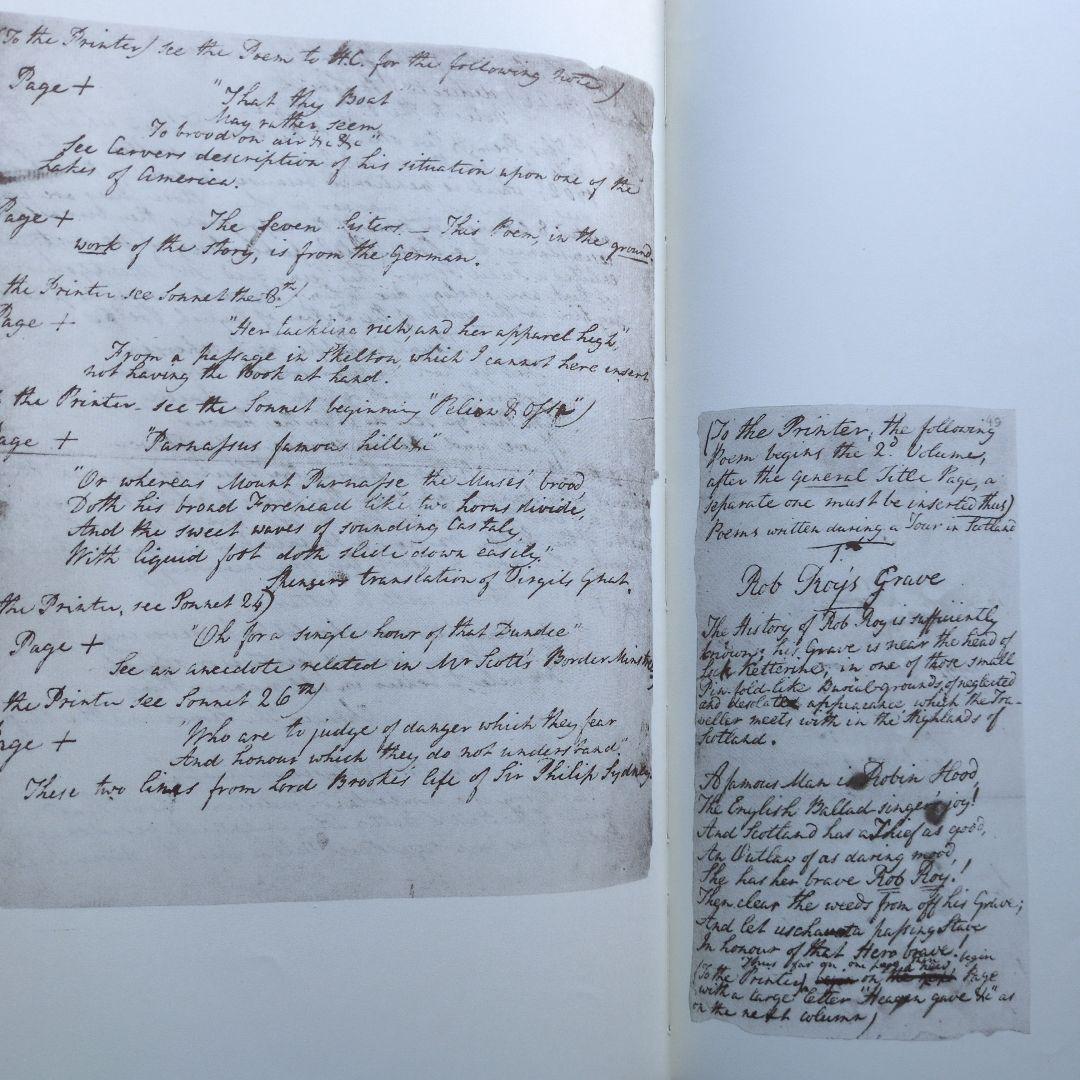 (To the Printer) see the Poem to H.C. for the following note)
Page +
"That thy Boat
May rather seem
To brood on air &c &c"
See Carvers description of his situation upon one of the
Lakes of America.
Page +
The Seven Sisters — This Poem, in the ground
work of the story, is from the German.
the Printer see Sonnet the 8.th)
Page +
"Her tackling rich, and her apparel high,"
From a passage in Skelton, which I cannot here insert
not having the Book at hand.
the Printer - see the Sonnet beginning "Pelion & Ossa")
age +
"Parnassus famous hill &c"
"Or whereas Mount Parnasse the Muses' brood,
Doth his broad Forehead like two horns divide,
And the sweet waves of sounding Castaly,
With liquid foot doth slide down easily."
Spensers translation of Virgils Gnat.
the Printer, see Sonnet 24)
Page +
"Oh for a single hour of that Dundee"
See an anecdote related in Mr Scott's Border Minstrelsy
the Printer see Sonnet 26th)
age +
"Who are to judge of danger which they fear
And honour which they do not understand"
These two lines from Lord Brooke's life of Sir Philip Sydney.
49
(To the Printer, the following
Poem begins the 2d. Volume,
after the general Title Page, a
separate one must be inserted thus)
Poems written during a Tour in Scotland
Rob Roy's Grave
The History of Rob Roy is sufficiently
known; his Grave is near the head of
Loch Ketterine, in one of those small
Pin-fold-like Burial-grounds, of neglected
and desolate appearance which the Tra-
veller meets with in the Highlands of
Scotland.
A famous Man is Robin Hood,
The English Ballad singer's joy!
And Scotland has a Thief as good,
An Outlaw of as daring mood,
She has her brave Rob Roy!
Then clear the weeds from off his Grave;
And let us chaunt a passing Stave
In honour of that Hero brave!
Thus far on one page begin
(To the Printer) on Page
with a large letter "Heaven gave &c" as
on the next column)